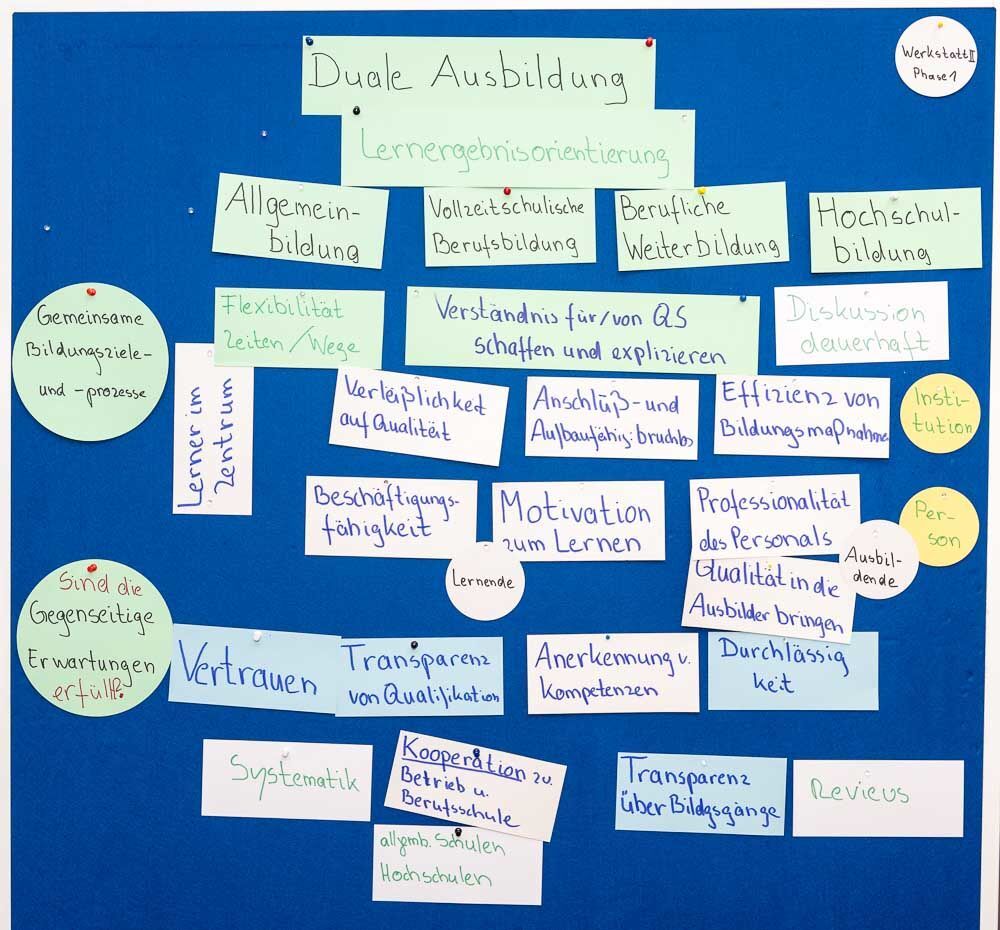 Werkstatt II
Phase 1
Duale Ausbildung
Lernergebnisorientierung
Allgemein-
bildung
Vollzeitschulische
Berufsbildung
Berufliche
Weiterbildung
Hochschul-
bildung
Gemeinsame
Bildungsziele-
und -prozesse
Flexibilität
Zeiten/Wege
Verständnis für/von QS
schaffen und explizieren
Diskussion
dauerhaft
Lerner im
Zentrum
Verläßlichkeit
auf Qualität
Anschlüß- und
Aufbaufähig: bruchlos
Effizienz von
Bildungsmaßnahmen
Insti-
tution
Beschäftigungs-
fähigkeit
Motivation
zum Lernen
Lernende
Professionalität
des Personals
Qualität in die
Ausbilder bringen
Ausbil-
dende
Per-
son
Sind die
Gegenseitige
Erwartungen
erfüllt?
Vertrauen
Transparenz
von Qualifikation
Anerkennung v.
Kompetenzen
Durchlässig
keit
Systematik
Kooperation zw.
Betrieb u.
Berufsschule
allgmb. Schulen
Hochschulen
Transparenz
über Bildgsgänge
Reviews